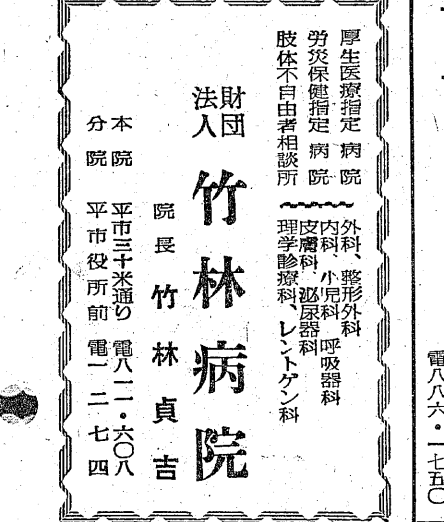 厚生医療指定病院
労災保健指定病院
肢体不自由者相談所
外科、整形外科
内科、小児科、呼吸器科
皮膚科、泌尿器科
理学診療科、レントゲン科
財団法人
竹林病院
院長 竹林貞吉
本院 平市三十米通り 電八一一・六〇八
分院 平市役所前 電一二七四
電八八六・一七五〇